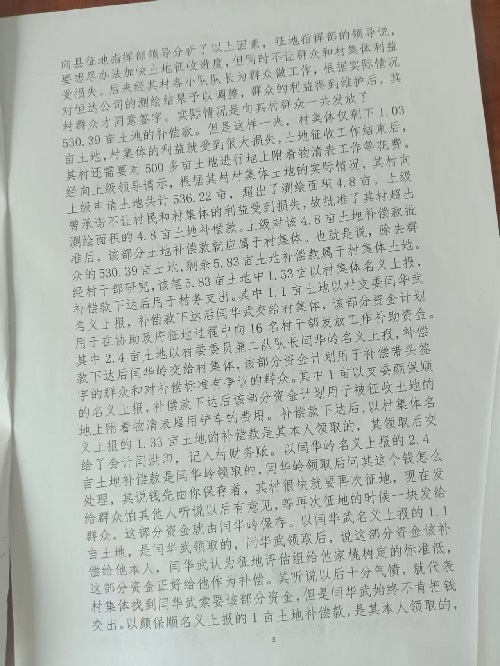 向县征地指挥部领导分析了以上因素，征地指挥部的领导说，
要想尽办法加快土地征收进度，但同时不让群众和村集体利益
受损失。后来经其村各小队队长为群众做工作，根据实际情况
对恒达公司的测绘结果予以调整，群众的利益得到维护后，其
村群众才同意签字。实际情况是向其村群众一共发放了
530.39亩土地的补偿款。但是这样一来，村集体仅剩下1.03
亩土地，村集体的利益就受到很大损失，土地征收工作结束后，
其村还需要对500多亩土地进行地上附着物清表工作等花费。
经向上级领导请示，根据其村村集体土地的实际情况，其村向
上级申请土地共计536.22亩，超出了测绘面积4.8亩。上级
曾承诺不让村民和村集体的利益受到损失，故批准了其村超出
测绘面积的4.8亩土地补偿款。上级对该4.8亩土地补偿款批
准后，该部分土地补偿款就应属于村集体。也就是说，除去群
众的530.39亩土地，剩余5.83亩土地补偿款属于村集体土地。
经村干部研究，该笔5.83亩土地中1.33亩以村集体名义上报，
补偿款下达后用于村务支出。其中1.1亩土地以村支委闫华武
名义上报，补偿款下达后闫华武交给村集体，该部分资金计划
用于在协助政府征地过程中向16名村干部发放工作补助资金。
其中2.4亩土地以村委委员兼二队队长闫华岭名义上报，补偿
款下达后闫华岭交给村集体，该部分资金计划用于补偿带头签
字的群众和对补偿标准有争议的群众。其中1亩以支委颜保顺
的名义上报，补偿款下达后该部分资金计划用于被征收土地的
地上附着物清表雇用铲车的费用。补偿款下达后，以村集体名
义上报的1.33亩土地的补偿款是其本人领取的，其领取后交
给了会计闫洪，记入村财务账。以闫华岭名义上报的2.4
亩土地补偿款是闫华岭领取的，闫华岭领取后问其这个钱怎么
处理，其说钱先由你保存着，其村很快就要再次征地，现在发
给群众怕其他人听说以后有意见，等再次征地的时候一块发给
群众。这部分资金就由闫华岭保存。以闫华武名义上报的1.1
亩土地，是闫华武领取的，闫华武领取后，说这部分资金该补
偿给他本人，闫华武认为征地评估组给他家桃树定的标准低，
这部分资金正好给他作为补偿。其听说以后十分气愤，就代表
村集体找到闫华武索要该部分资金，但是闫华武始终不肯把钱
交出。以颜保顺名义上报的1亩土地补偿款，是其本人领取的，
3